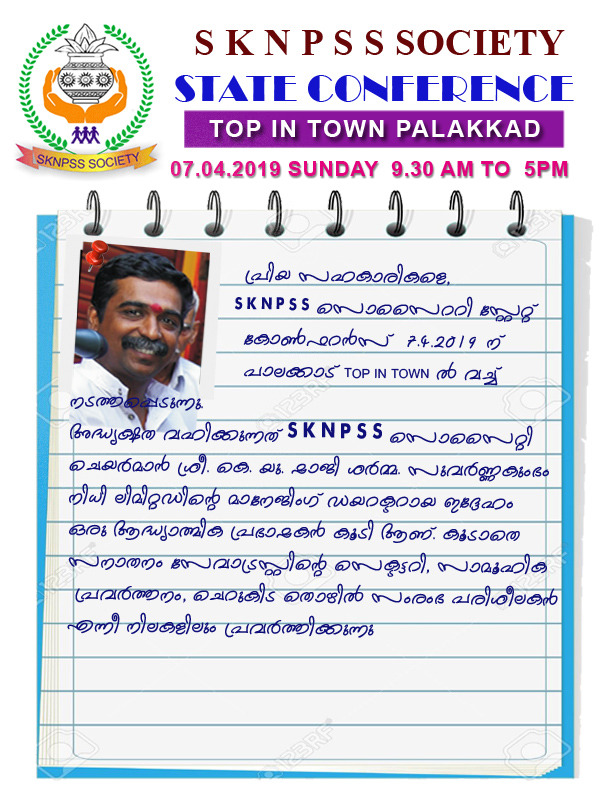 S K N P S S SOCIETY
STATE CONFERENCE
TOP IN TOWN PALAKKAD
07.04.2019 SUNDAY 9.30 AM TO 5PM
SKNPSS SOCIETY
പ്രിയ സഹകാരികളെ,
SKNPSS സൊസൈററി സ്റ്റേറ്റ്
കോൺഫറൻസ് 7.4.2019 ന്
പാലക്കാട് TOP IN TOWN ൽ വച്ച്
നടത്തപ്പെടുന്നു.
അദ്ധ്യക്ഷത വഹിക്കുന്നത് SKNPSS സൊസൈറ്റി
ചെയർമാൻ ശ്രീ. കെ. യു. ഷാജി ശർമ്മ. സുവർണ്ണകുംഭം
നിധി ലിമിറ്റഡിന്റെ മാനേജിംഗ് ഡയറക്ടറായ ഇദ്ദേഹം
ഒരു ആദ്ധ്യാത്മിക പ്രഭാഷകൻ കൂടി ആണ്. കൂടാതെ
സനാതനം സേവാട്രസ്റ്റിന്റെ സെക്രട്ടറി, സാമൂഹിക
പ്രവർത്തനം, ചെറുകിട തൊഴിൽ സംരംഭ പരിശീലകൻ
എന്നീ നിലകളിലും പ്രവർത്തിക്കുന്നു
123RF